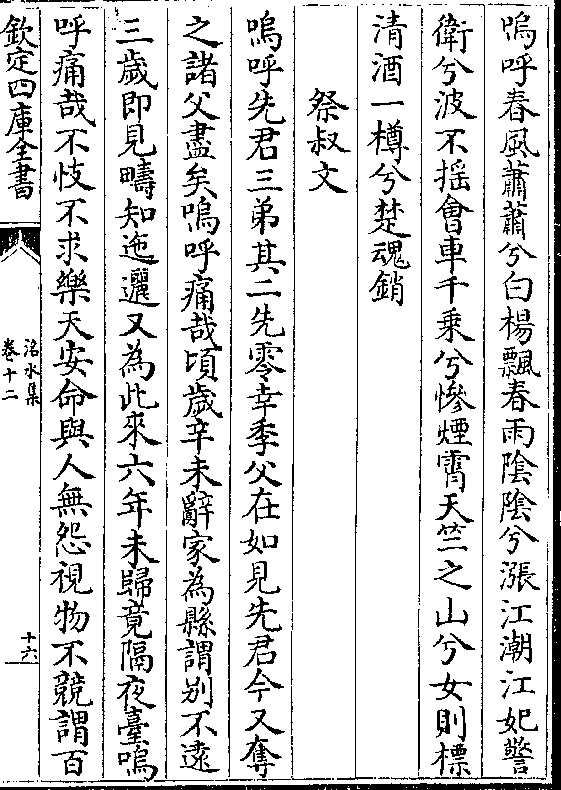 嗚呼春風蕭蕭兮白楊飄春雨陰陰兮漲江潮江妃警
衛兮波不揺會車千乗兮慘煙霄天竺之山兮女則標
清酒一樽兮楚魂銷
祭叔文
嗚呼先君三弟其二先零幸季父在如見先君今又奪
之諸父盡矣嗚呼痛哉頃歲辛未辭家為縣謂别不逺
三歲即見疇知迤邐又為此來六年未歸竟隔夜臺嗚
呼痛哉不忮不求樂天安命與人無怨視物不競謂百
欽定四庫全書
洺水集
卷十二
十六